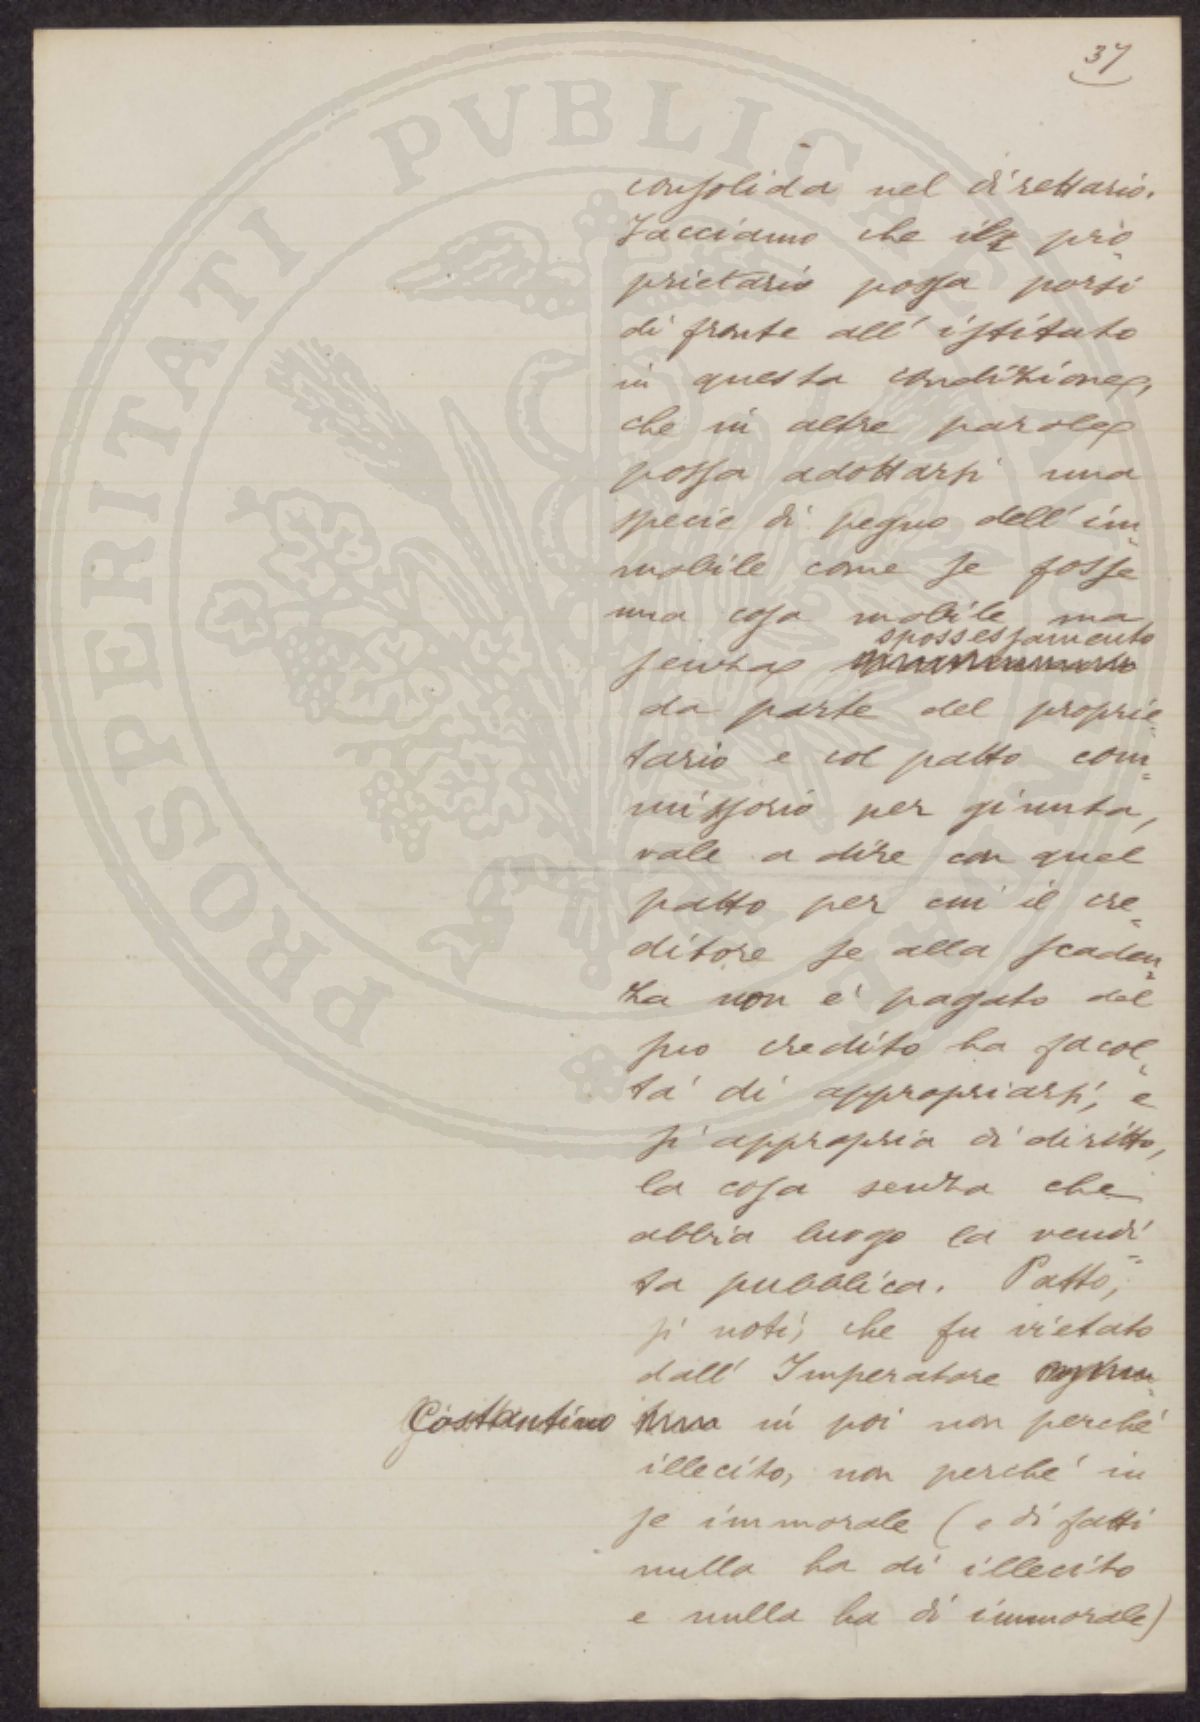 37
consolida nel direttario.
Facciamo che il pro
prietario possa porsi
di fronte all' istituto
in questa condizione,
che in altre parole
possa adottarsi una
specie di pegno dell' im=
mobile come se fosse
una cosa mobile ma
spossessamento
senza
da parte del proprie=
tario e col patto com=
missorio per giunta,
vale a dire con quel
patto per cui il cre=
ditore se alla scaden=
za non è pagato del
suo credito ha facol=
tà di appropriarsi, e
si appropria di diritto,
la cosa senza che
abbia luogo la vendi=
ta pubblica. Patto,
si noti, che fu vietato
dall' Imperatore
Costantino in poi non perché
illecito, non perché in
se immorale (e di fatti
nulla ha di illecito
e nulla ha di immorale)
PROSPERITATI PVBLICAE